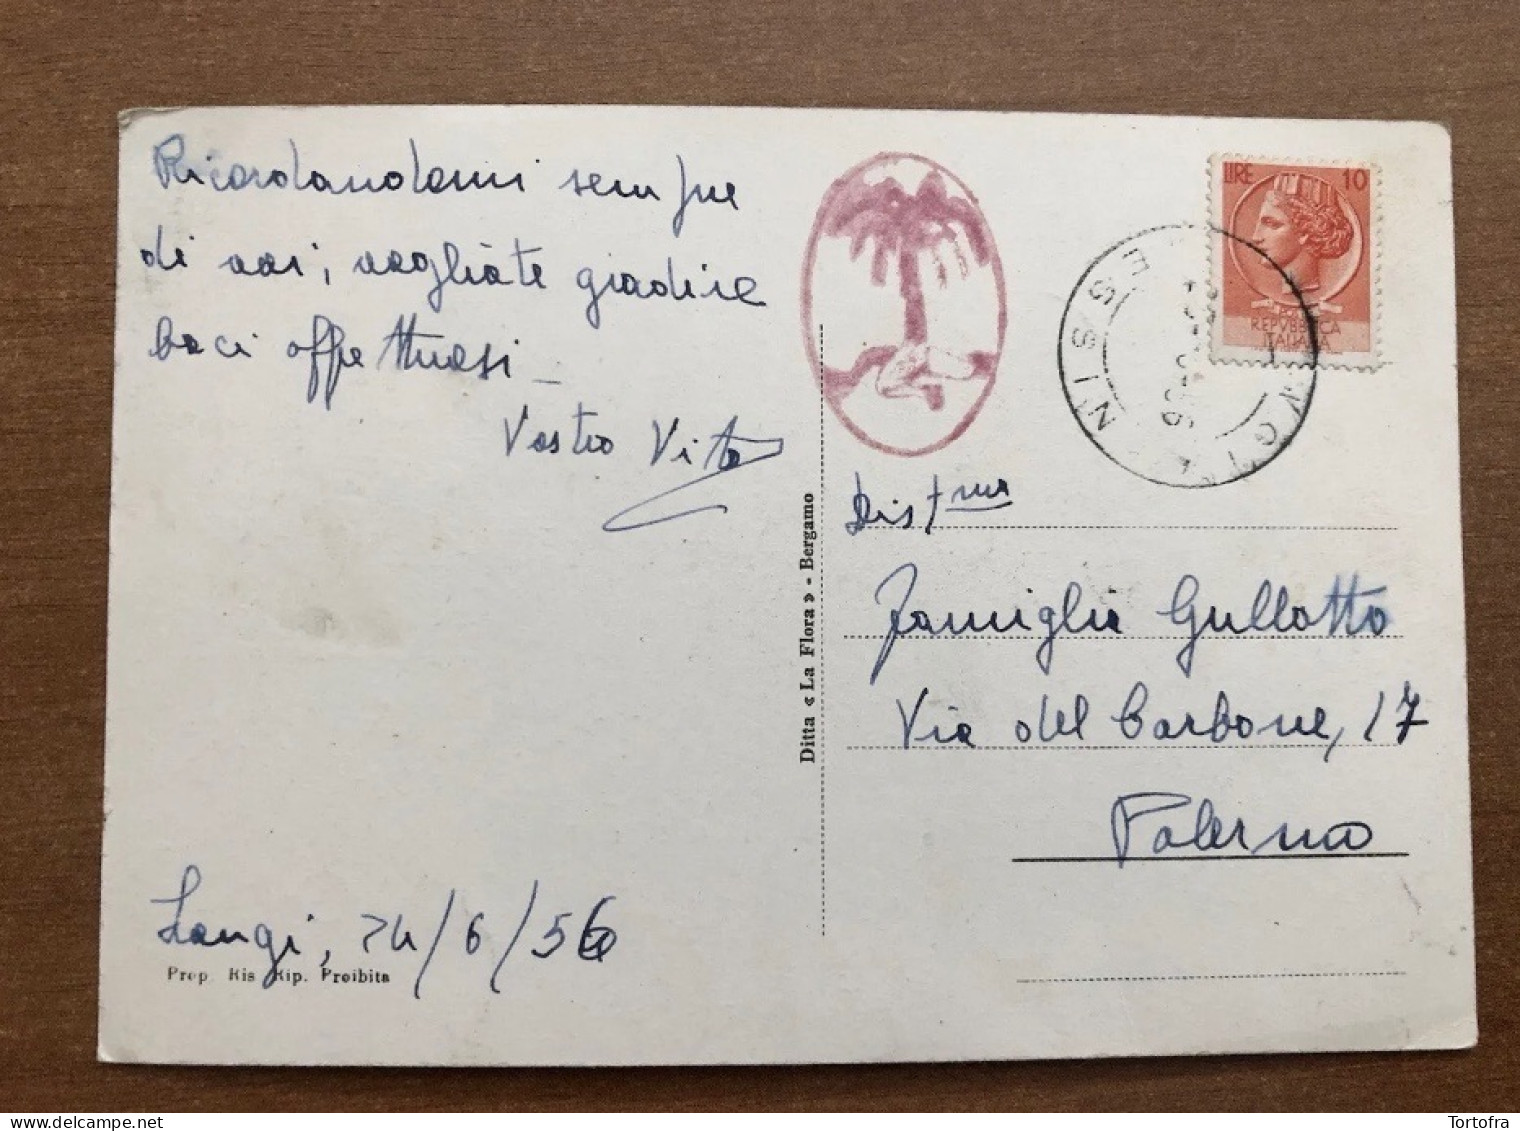 Ricordandomi sempre
di voi, vogliate gradire
baci affettuosi
Vostro Vito
Longi, 24/6/56
Prop. Ris Rip. Proibita
Ditta « La Flora » - Bergamo
LIRE 10
REPVBBLICA
ITALIANA
Dist.ma
Famiglia Gullotto
Via del Carbone, 17
Palermo
www.delcampe.net
Tortofra